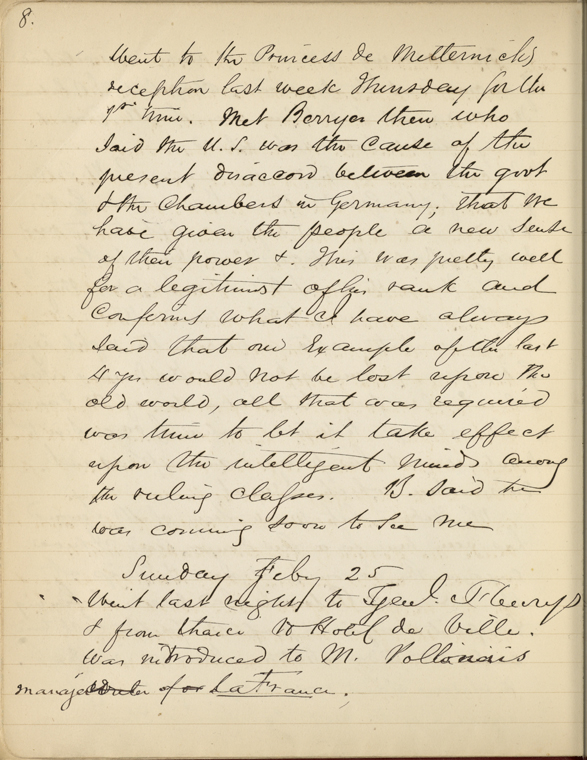 8.
Went to the Princess de Metternichs
reception last week Thursday for the
1st time. Met Berryer there who
said the U.S. was the cause of the
present disaccord between the govt
& the Chambers in Germany; that we
have given the people a new sense
of their power &. This was pretty well
for a legitimist of his rank and
Confirms what I have always
said that our Example of the last
4 yrs would not be lost upon the
old world, all that was required
was time to let it take effect
upon the intelligent minds among
the ruling classes. B. said he
was coming soon to see me
Sunday Feby 25
Went last night to Genl. Fleurys
& from thence to Hotel de Ville.
was introduced to M. Pollonais
manager of La France.